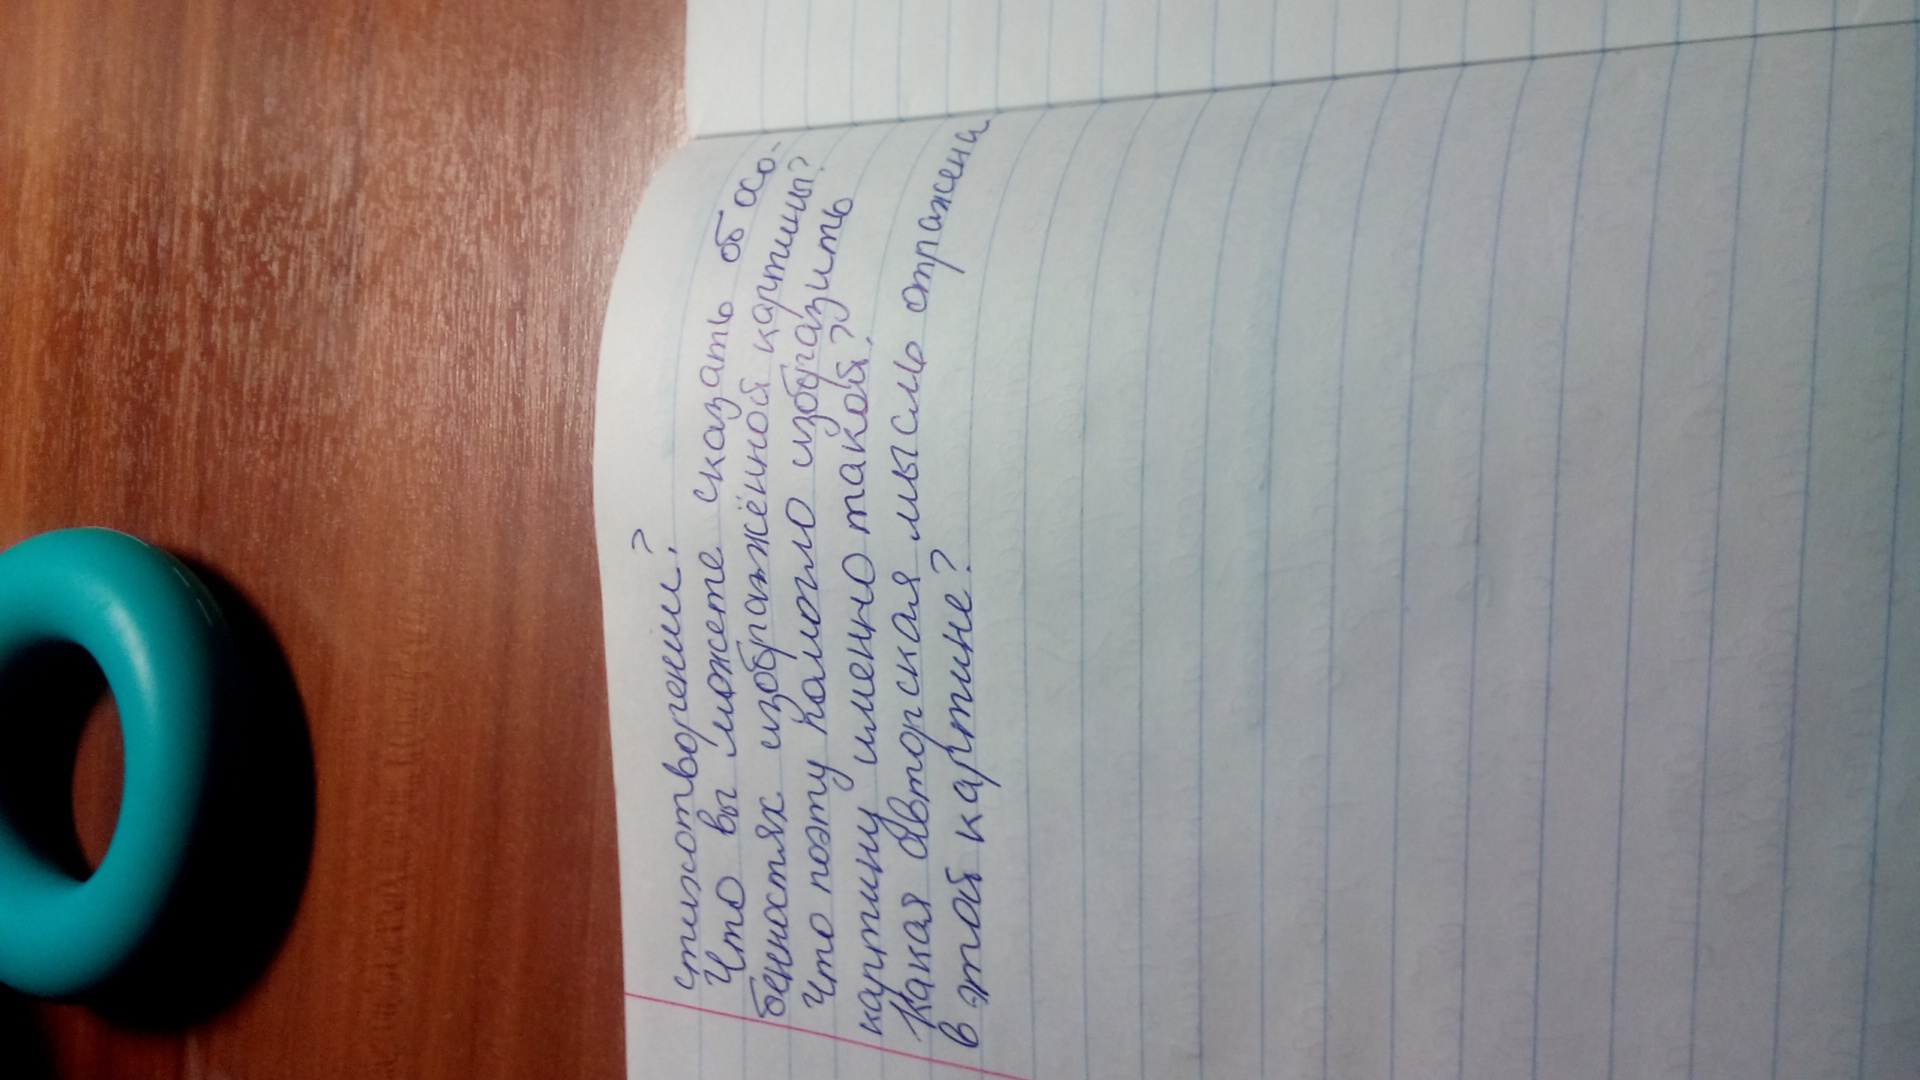 стихотворении?
Что вы можете сказать об осо-
бенностях изображённой картины?
Что поэту помогло изобразить
картину именно такой?
Какая авторская мысль отражена
в этой картине?